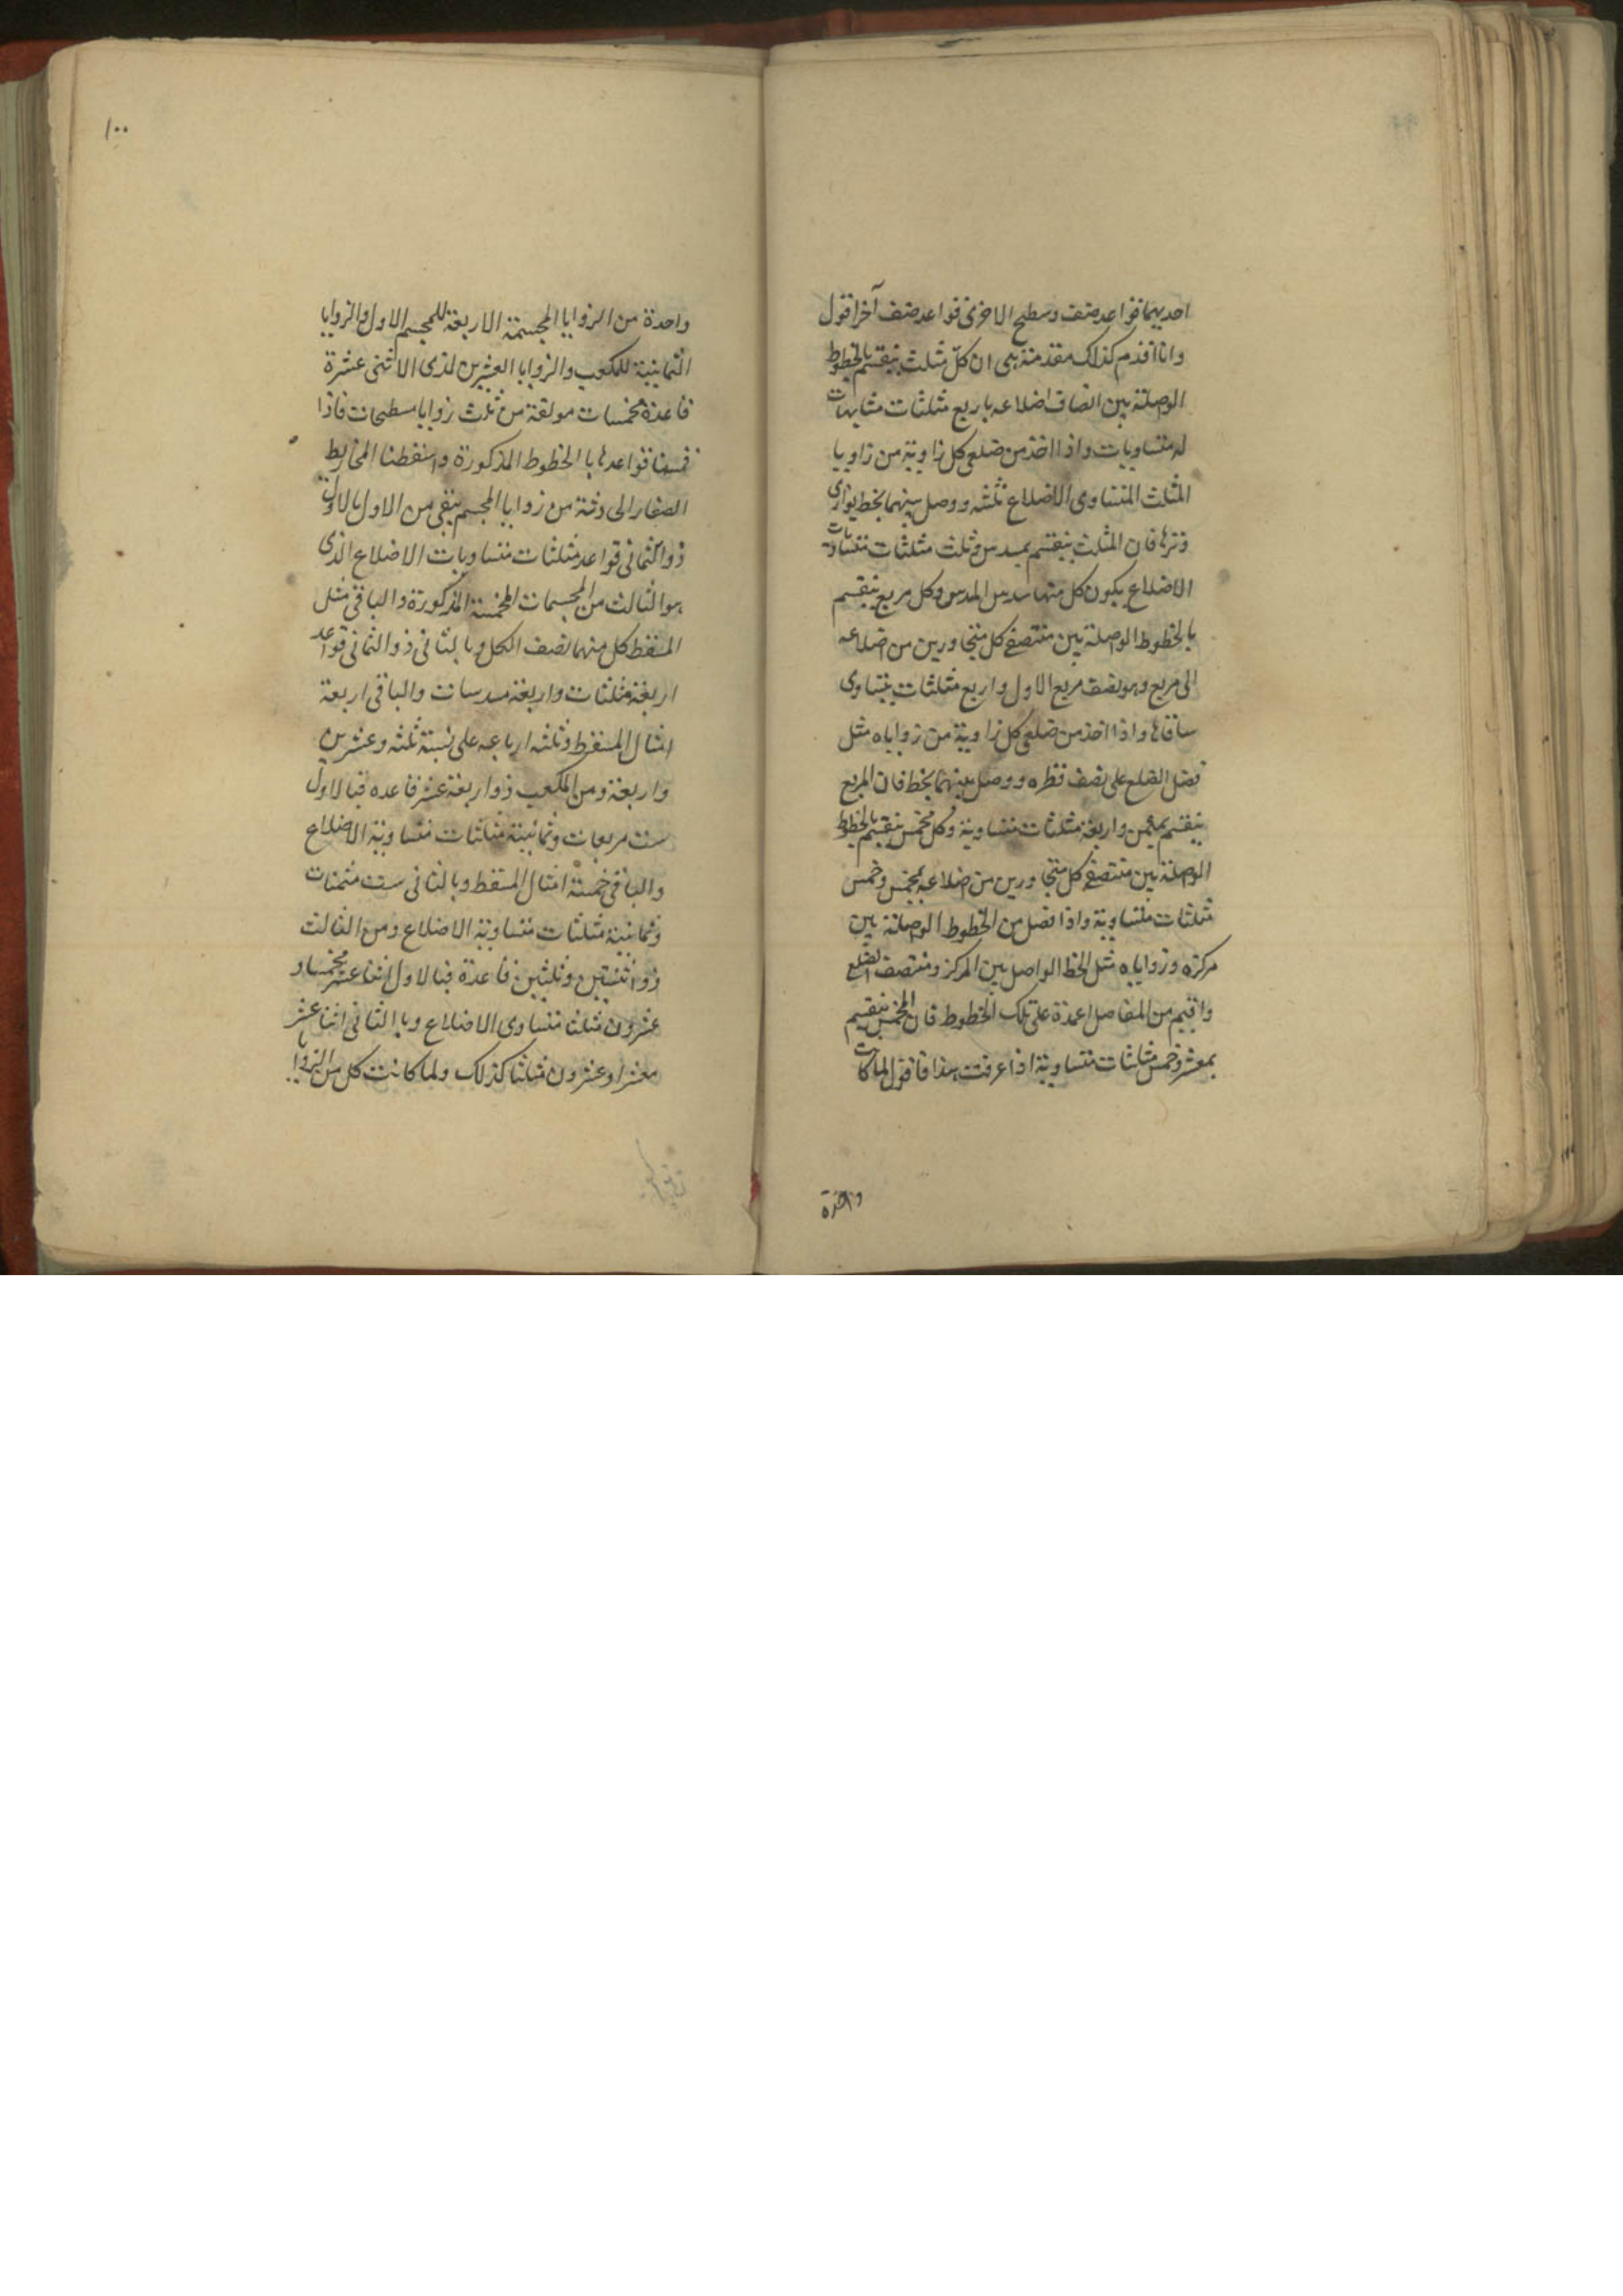 احديهما قواعد صنف وسطح الاخرى قواعد صنف آخر اقول
وانا اقدم كذلك مقدمة هى ان كل مثلث ينقسم بالخطوط
الوصلة بين انصاف اضلاعه باربع مثلثات متشابهات
له متساويات واذا اخذ من ضلعى كل زاوية من زاويا
المثلث المتساوى الاضلاع ثلثه ووصل بينهما بخط يوازى
وترها فان المثلث ينقسم بمسدس وثلث مثلثات متساويات
الاضلاع يكون كل منها سدس المسدس وكل مربع ينقسم
بالخطوط الوصلة بين منتصفى كل متجاورين من اضلاعه
الى مربع وهو نصف مربع الاول واربع مثلثات يتساوى
ساقاها واذا اخذ من ضلعى كل زاوية من زواياه مثل
فضل الضلع على نصف قطره ووصل بينهما بخط فان المربع
ينقسم بمثمن واربعة مثلثات متساوية وكل مخمس ينقسم بالخطوط
الوصلة بين منتصفى كل متجاورين من اضلاعه بمخمس وخمس
مثلثات متساوية واذا فصل من الخطوط الوصلة بين
مركزه وزواياه مثل الخط الواصل بين المركز ومنتصف الضلع
واقيم من المفاصل اعمدة على تلك الخطوط فان المخمس ينقسم
بمعشر وخمس مثلثات متساوية اذا عرفت هذا فاقول لما كانت
واحدة
١٠٠
واحدة من الزوايا المجسمة الاربعة للمجسم الاول والزوايا
الثمانية للمكعب والزوايا العشرين لذى الاثنى عشرة
قاعدة مخمسات مولفة من ثلث زوايا مسطحات فاذا
قسمنا قواعدها بالخطوط المذكورة واسقطنا المخاريط
الصغار الى وثة من زوايا المجسم بقى من الاول بالاول
ذو الثمانى قواعد مثلثات متساويات الاضلاع الذى
هو الثالث من المجسمات الخمسة المذكورة والباقى مثل
المسقط كل منهما نصف الكل وبالثانى ذو الثمانى قواعد
اربعة مثلثات واربعة مسدسات والباقى اربعة
امثال المسقط وثلثه ارباعه على نسبة ثلثه وعشرين
واربعة ومن المكعب ذو اربعة عشر قاعده فبالاول
ست مربعات وثمانية مثلثات متساوية الاضلاع
والباقى خمسة امثال المسقط وبالثانى ست مثمنات
وثمانية مثلثات متساوية الاضلاع ومن الثالث
ذو اثنتين وثلثين قاعدة فبالاول اثنا عشر مخمسا و
عشرون مثلثا متساوى الاضلاع وبالثانى اثنا عشر
معشرا وعشرون مثلثا كذلك ولما كانت كل من الزوايا